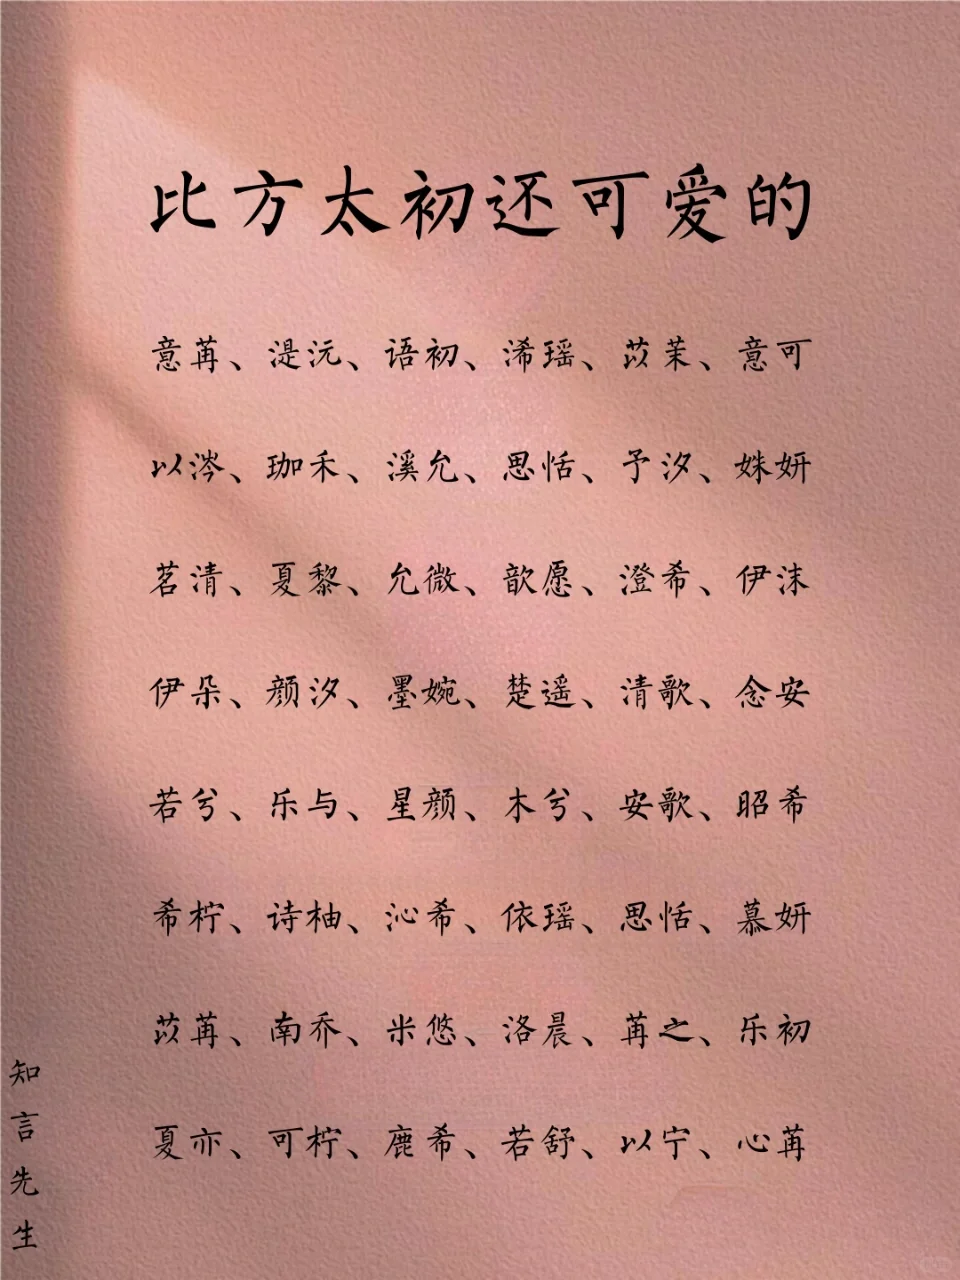 比方太初还可爱的
意苒、湜沅、语初、浠瑶、苡茉、意可
以涔、珈禾、溪允、思恬、予汐、姝妍
茗清、夏黎、允微、歆愿、澄希、伊沫
伊朵、颜汐、墨婉、楚遥、清歌、念安
若兮、乐与、星颜、木兮、安歌、昭希
希柠、诗柚、沁希、依瑶、思恬、慕妍
苡苒、南乔、米悠、洛晨、苒之、乐初
夏亦、可柠、鹿希、若舒、以宁、心苒
知言先生